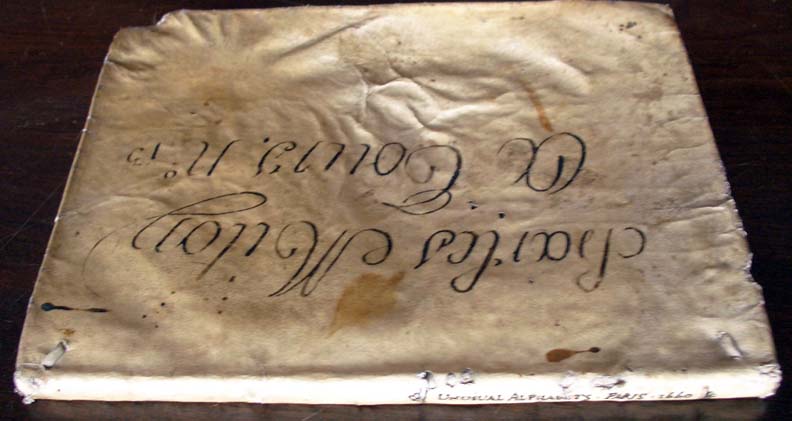 Charles
A Tours, N° 13
UNUSUAL ALPHABETS. PARIS. 1660